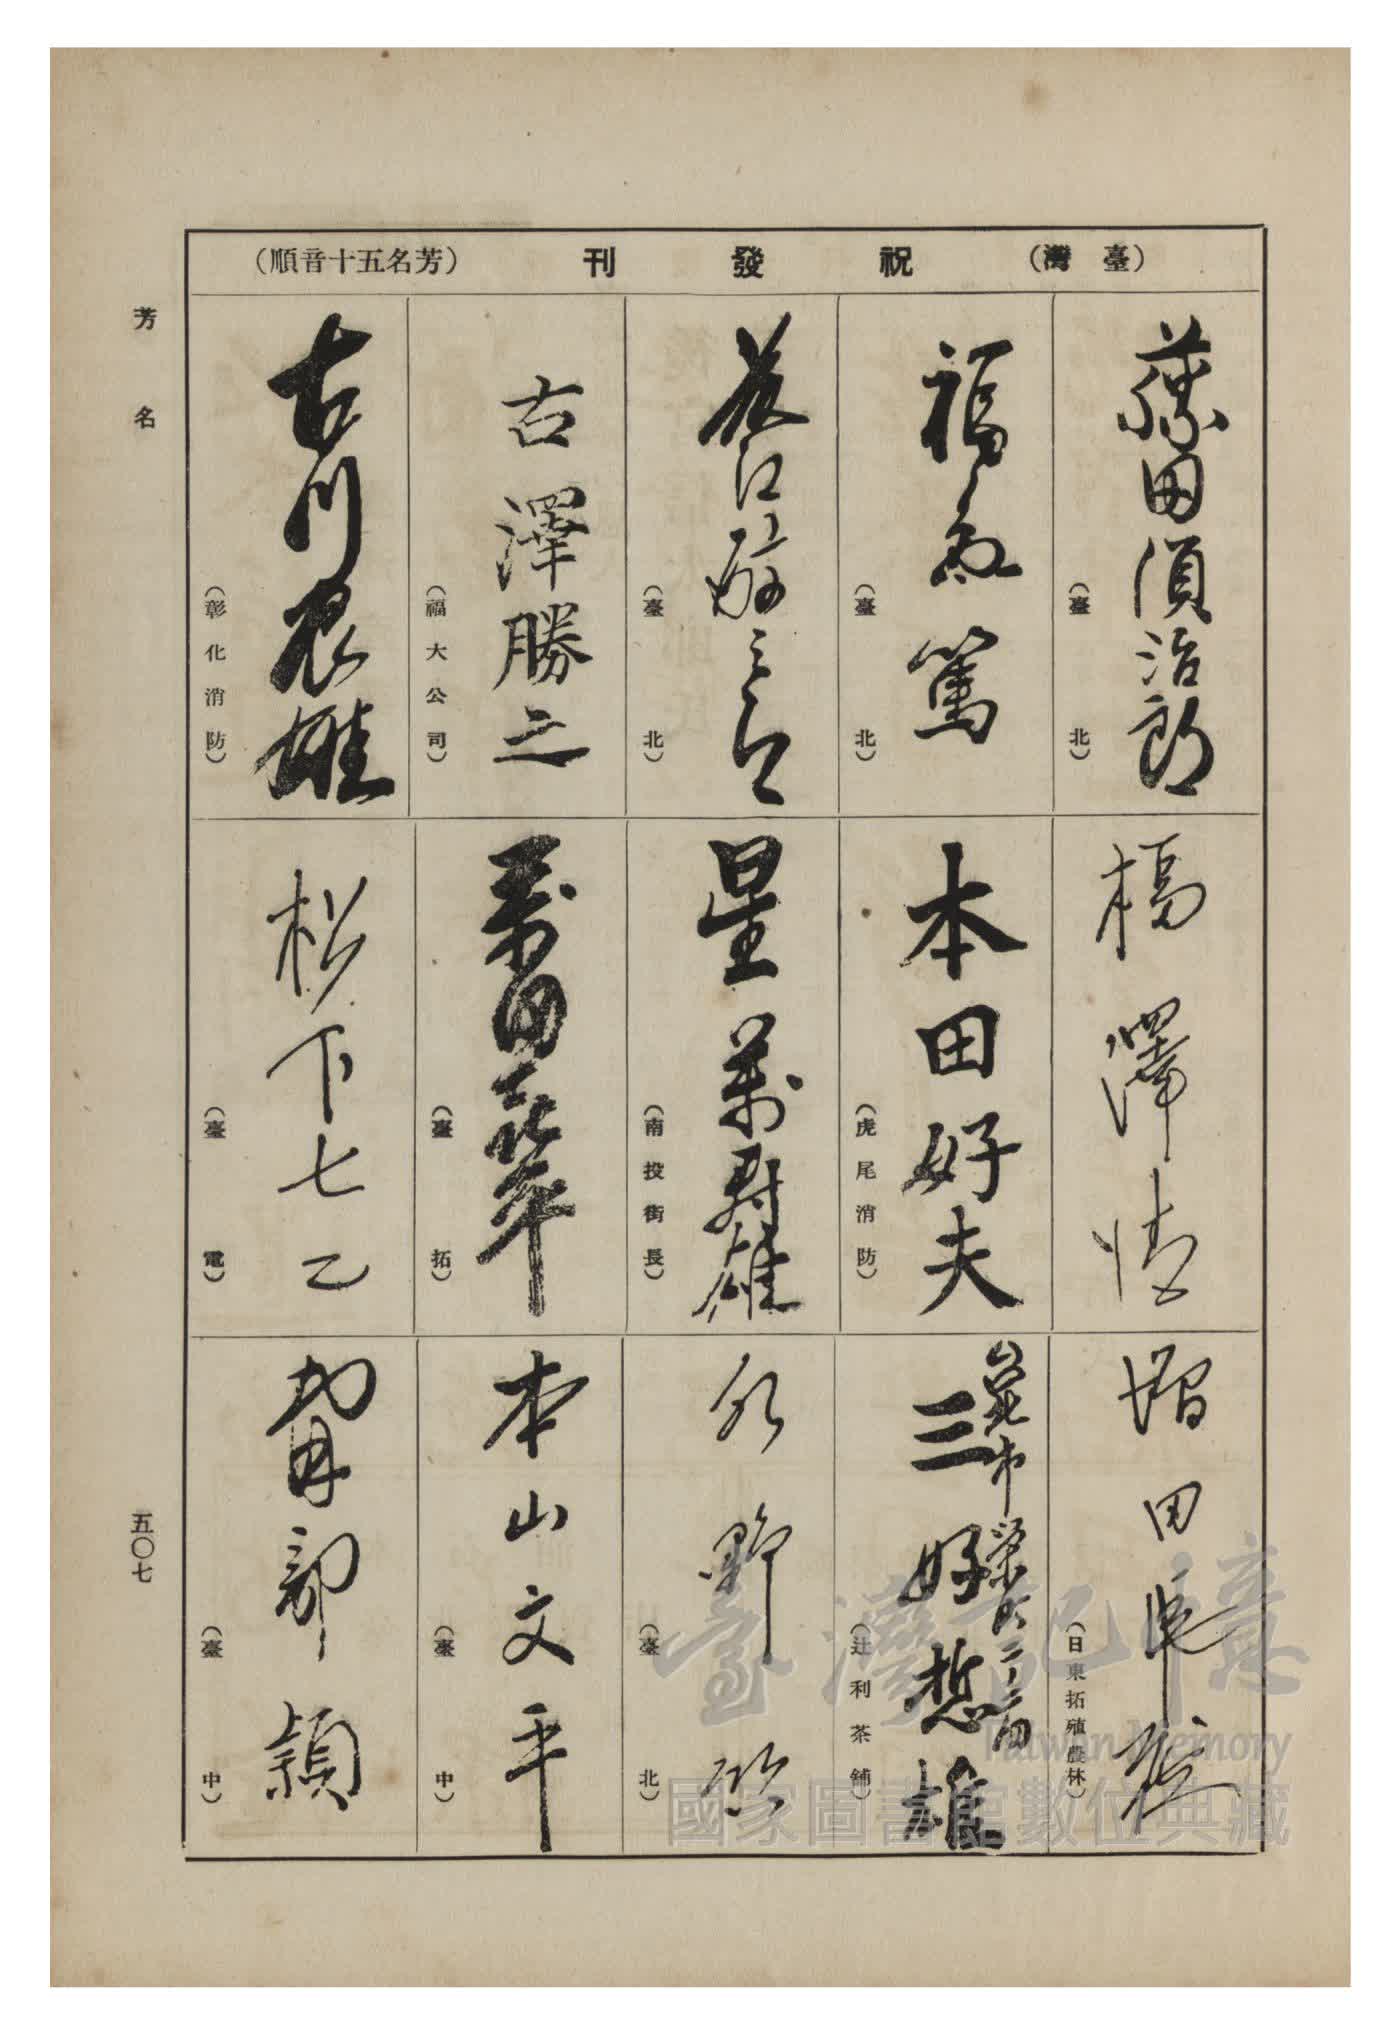 (臺灣) 祝發刊 (芳名五十音順)
藤田須治郎
(臺北)
福島篤
(臺北)
藤江醇三郎
(臺北)
古澤勝之
(福大公司)
古川良雄
(彰化消防)
槗澤情
本田好夫
(虎尾消防)
星萬壽雄
(南投街長)
(臺拓)
松下七乙
(臺電)
増田
(日東拓殖農林)
三好哲雄
(辻利茶舗)
水野
(臺北)
本山文平
(臺中)
部穎
(臺中)
芳名
五〇七
臺灣記憶
Taiwan Memory
國家圖書館數位典藏